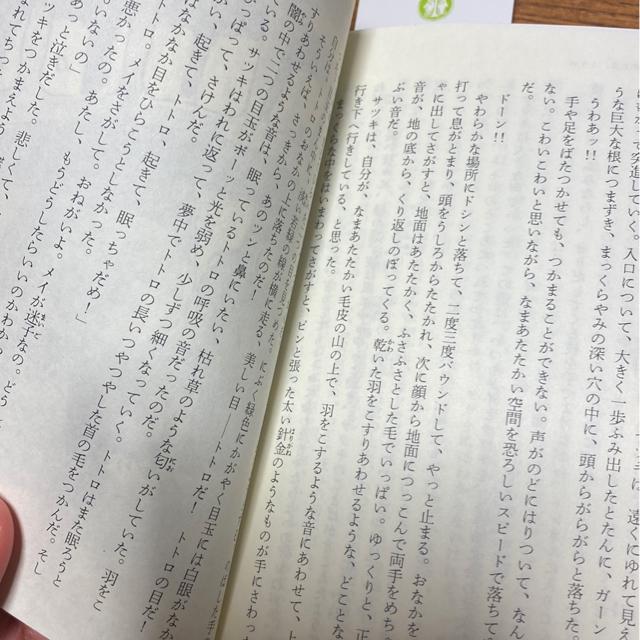 うな巨大な根につまずき、まっくらやみの深い穴の中に、頭からがらがらと落ちた
うわあッ!!
手や足をばたつかせても、つかまることができない。声がのどにはりついて、なん
ない。こわいこわいと思いながら、なまあたたかい空間を恐ろしいスピードで落ちて
だ。
ドーン!!
やわらかな場所にドシンと落ちて、二度三度バウンドして、やっと止まる。おなかを
打って息がとまり、頭をうしろからたたかれ、次に顔から地面につっこんで両手をめちゃ
ゃに出してさがすと、地面はあたたかく、ふさふさとした毛でいっぱい。ゆっくりと、正
音が、地の底から、くり返しのぼってくる。乾いた羽をこすりあわせるような、どことな
ぶい音だ。
サツキは、自分が、なまあたたかい毛皮の山の上で、羽をこするような音にあわせて、上
行き下へ行きしている、と思った。
まっくらな中をはいまわってさがすと、ピンと張った太い針金のようなものが手にさわった
すりあわせるような音は、眠っているトトロの呼吸の音だったのだ。
闇の中で二つの目玉がボーッと光を弱め、少しずつ細くなっていく。トトロはまた眠ろうと
ている。サツキはわれに返って、夢中でトトロの長いつやつやした首の毛をつかんだ。そし
っぱって、さけんだ。
起きて、トトロ、起きて、眠っちゃだめ!」
はなかなか目をひらこうとしなかった。
トロ。メイをさがして。おねがいよ。メイが迷子なの。どう
悪かったの。あたし、もうどうしたらいいのかわか
いないの」
あっと泣きだした。悲しくて、